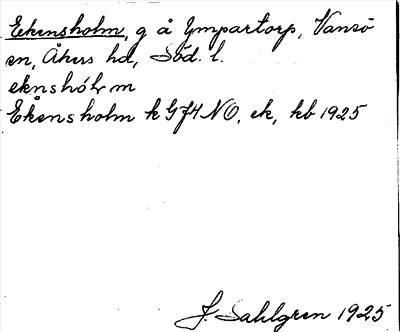 Ekensholm, g å Ympartorp, Vansö
sn, Åkers hd, Söd. l.
eknshólm
Ekensholm k GJ4NO, ek, kb 1925
J. Sahlgren 1925